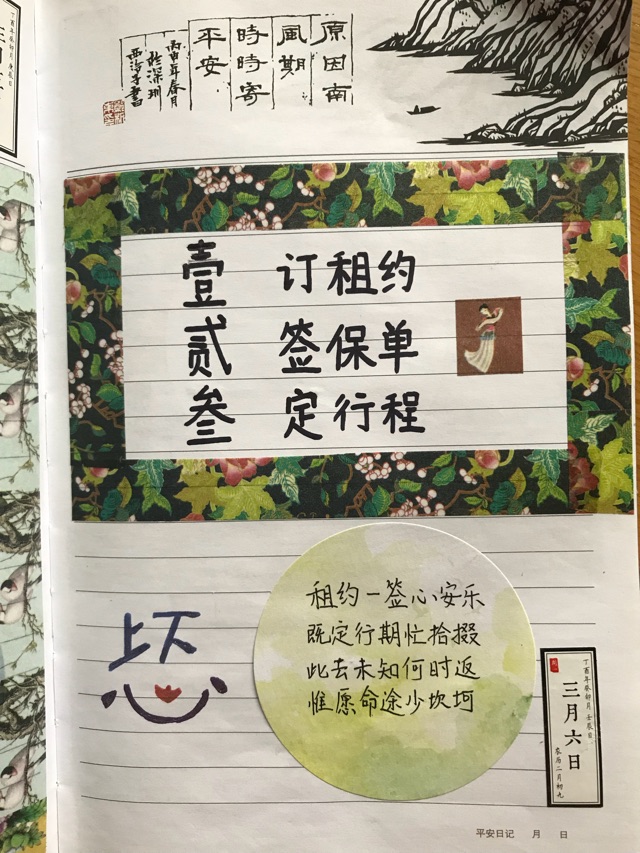 原因南
風期
時時寄
平安
丙申年春月
於深圳
壹 订租约
贰 签保单
叁 定行程
上下
心
租约一签心安乐
既定行期忙拾掇
此去未知何时返
惟愿命途少坎坷
丁酉年癸卯月壬辰日
三月六日
农历二月初九
平安日记 月 日